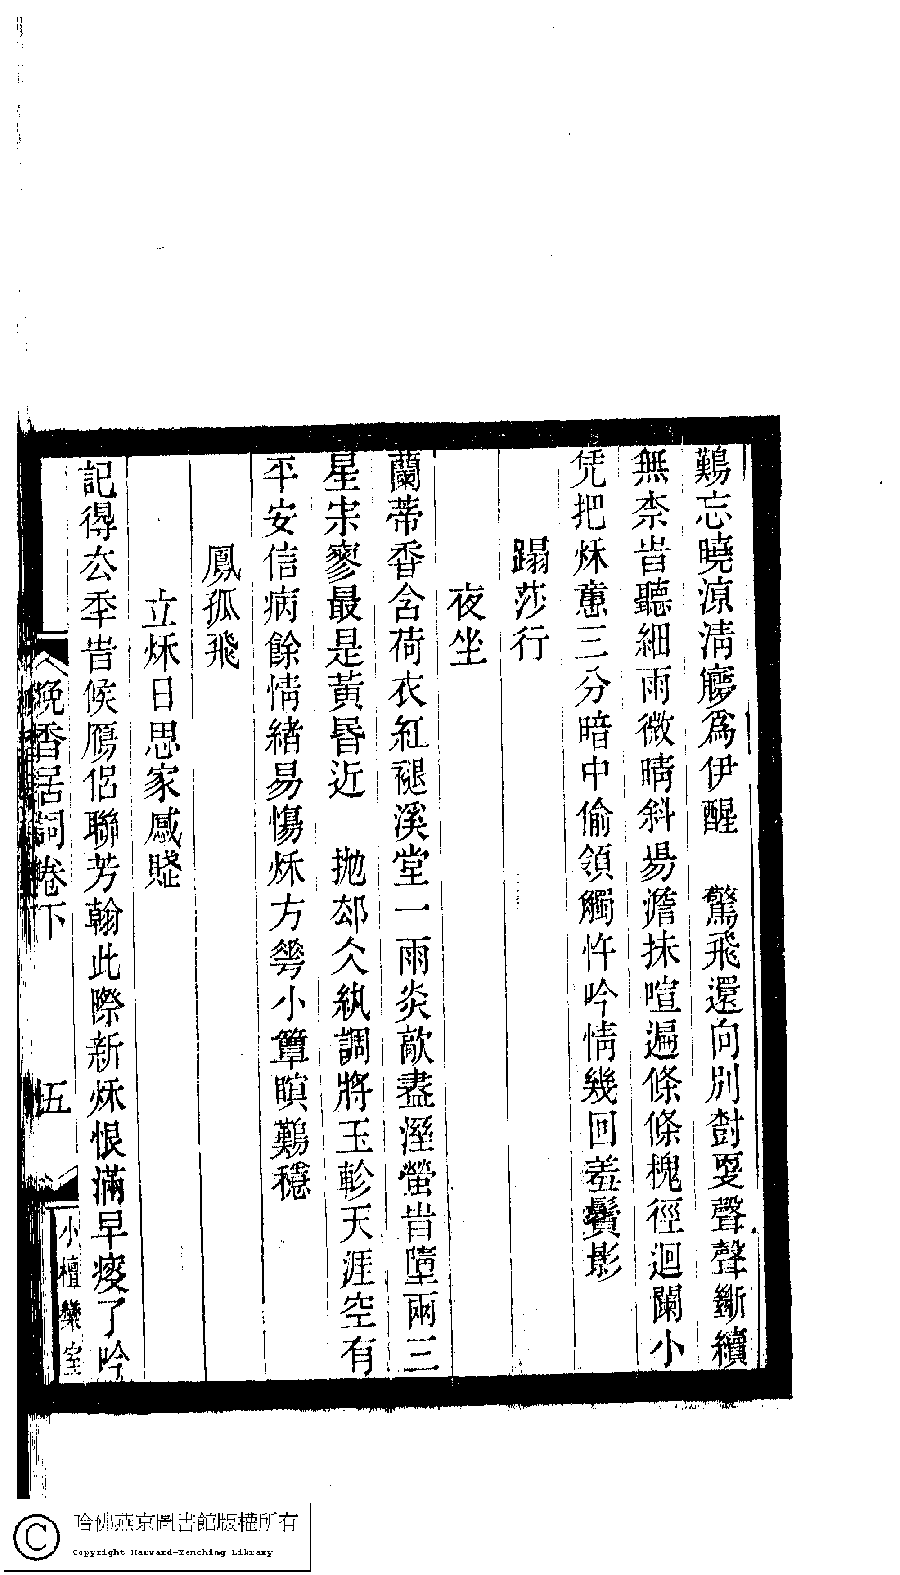 鷄忘曉涼淸廫爲伊醒　驚飛還向別尌耍聲聲斷續
無柰旹聽細雨微晴斜昜澹抹喧遍條條槐徑迴闌小
凭把秌蕙三分暗中偷領觸忤吟情幾回羞鬢影
蹋莎行
夜坐
蘭蔕香含荷衣紅褪溪堂一雨炎歊盡溼螢旹墮兩三
星宋寥最是黃昏近　拋郄久紈調將玉軫天涯空有
平安信病餘情緖易傷秌方夢小簟瞋難穩
鳳孤飛
立秌日思家感賤
記得厺秊旹候鴈侶聯芳翰此際新秌恨滿早瘦了吟
晚香居詞卷下
五
小檀欒室
哈佛燕京圖書館版權所有
Copyright Harvard-Yenching Library